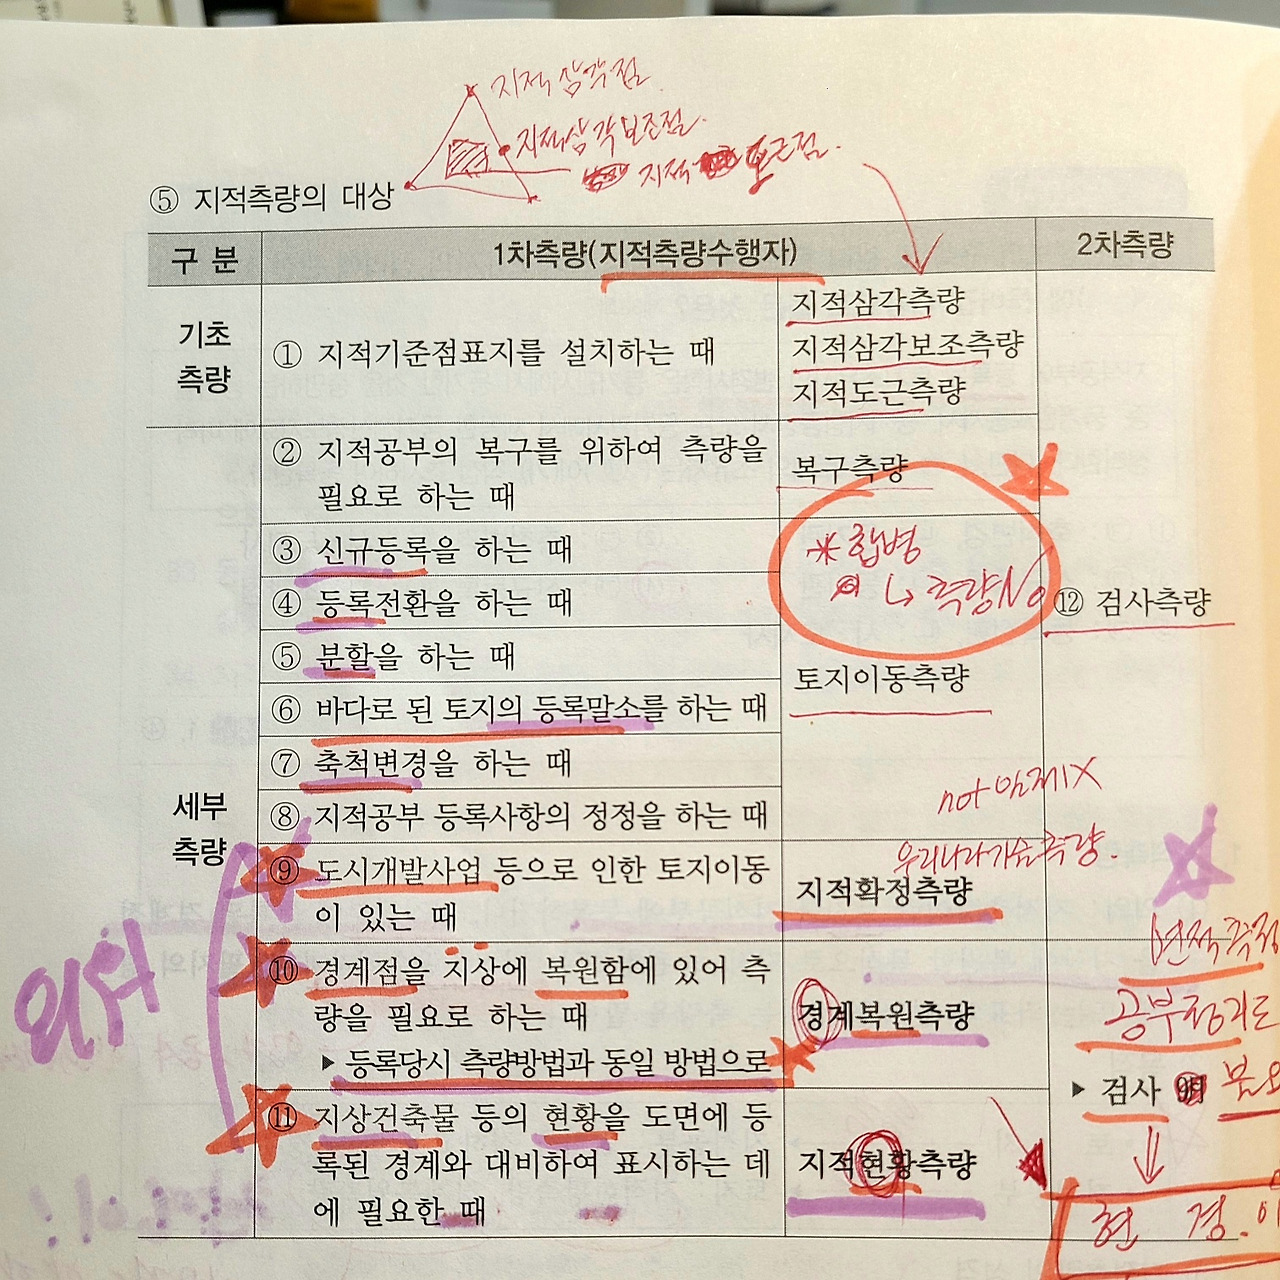 지적삼각점
지적삼각보조점
지적 도근점
⑤ 지적측량의 대상
구 분
1차측량(지적측량수행자)
2차측량
기초
측량
① 지적기준점표지를 설치하는 때
지적삼각측량
지적삼각보조측량
지적도근측량
② 지적공부의 복구를 위하여 측량을
필요로 하는 때
복구측량
③ 신규등록을 하는 때
* 합병
↳ 측량No
④ 등록전환을 하는 때
⑫ 검사측량
⑤ 분할을 하는 때
토지이동측량
⑥ 바다로 된 토지의 등록말소를 하는 때
⑦ 축척변경을 하는 때
세부
측량
⑧ 지적공부 등록사항의 정정을 하는 때
not
우리나라기술측량.
⑨ 도시개발사업 등으로 인한 토지이동
이 있는 때
지적확정측량
⑩ 경계점을 지상에 복원함에 있어 측
량을 필요로 하는 때
▶ 등록당시 측량방법과 동일 방법으로
경계복원측량
공부정리도
▶ 검사
⑪ 지상건축물 등의 현황을 도면에 등
록된 경계와 대비하여 표시하는 데
에 필요한 때
지적현황측량
현 경.